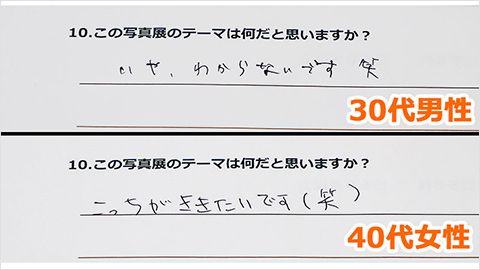 10.この写真展のテーマは何だと思いますか？
いや、わからないです 笑
30代男性
10.この写真展のテーマは何だと思いますか？
こっちがききたいです（笑）
40代女性